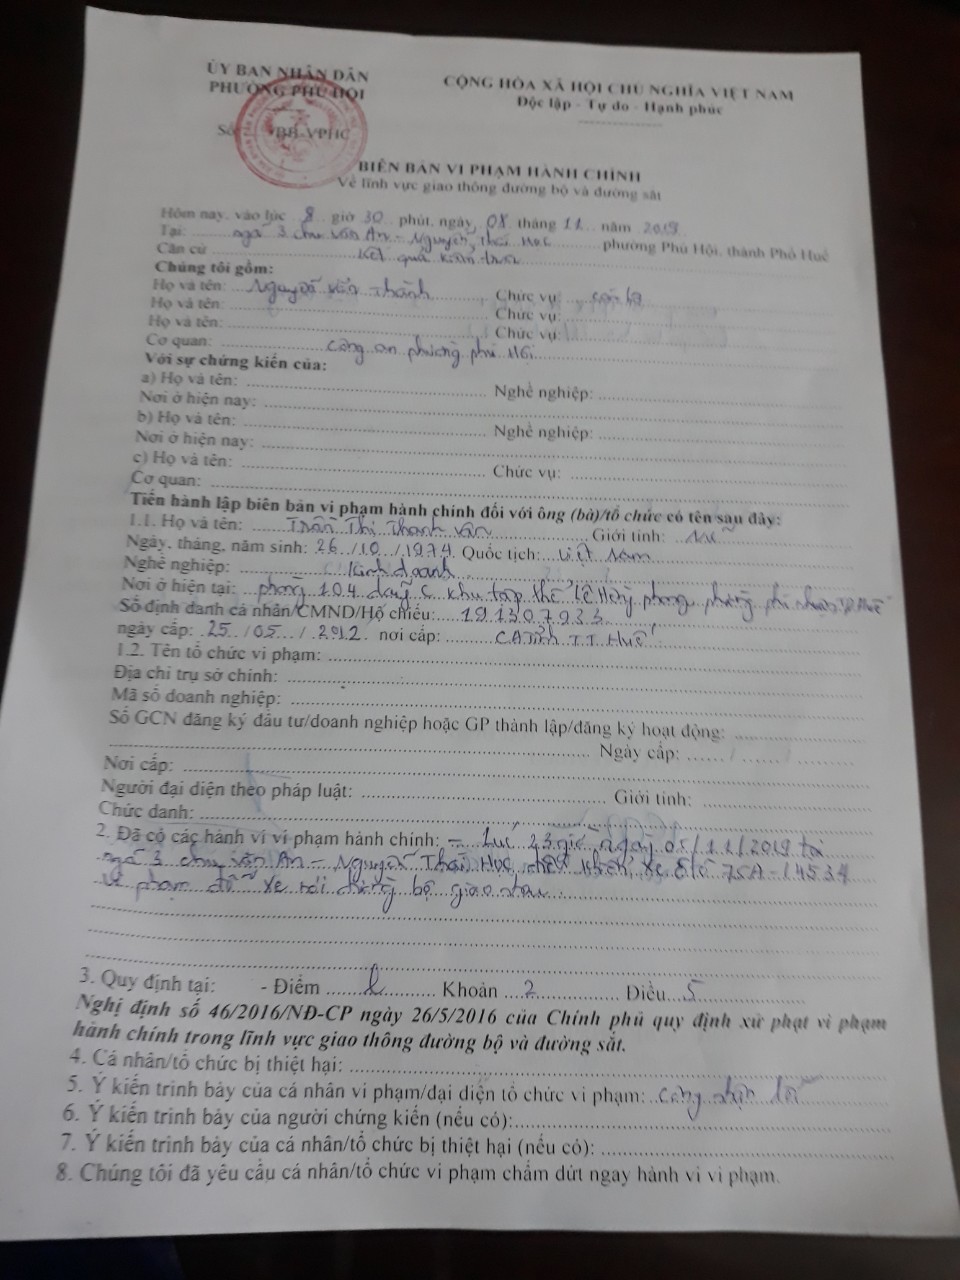 ỦY BAN NHÂN DÂN
PHƯỜNG PHÚ HỘI
CỘNG HÒA XÃ HỘI CHỦ NGHĨA VIỆT NAM
Độc lập - Tự do - Hạnh phúc
Số BB-VPHC
BIÊN BẢN VI PHẠM HÀNH CHÍNH
Về lĩnh vực giao thông đường bộ và đường sắt
Hôm nay, vào lúc 8 giờ 30 phút, ngày 08 tháng 11 năm 2019
Tại: ngã 3 Chu Văn An - Nguyễn Thái Học phường Phú Hội, thành Phố Huế
Căn cứ Kết quả kiểm tra
Chúng tôi gồm:
Họ và tên: Nguyễn Văn Thành Chức vụ: cán bộ
Họ và tên: Chức vụ:
Họ và tên: Chức vụ:
Cơ quan: Công an phường phú Hội
Với sự chứng kiến của:
a) Họ và tên: Nghề nghiệp:
Nơi ở hiện nay:
b) Họ và tên: Nghề nghiệp:
Nơi ở hiện nay:
c) Họ và tên: Chức vụ:
Cơ quan:
Tiến hành lập biên bản vi phạm hành chính đối với ông (bà)/tổ chức có tên sau đây:
1.1. Họ và tên: Trần Thị Thanh Vân Giới tính: Nữ
Ngày, tháng, năm sinh: 26/10/1974 Quốc tịch: Việt Nam
Nghề nghiệp: Kinh doanh
Nơi ở hiện tại: phòng 104 dãy C khu tập thể Lê Hồng phong, phường phú nhuận, TP Huế
Số định danh cá nhân/CMND/Hộ chiếu: 191307933
ngày cấp: 25/05/2012 nơi cấp: CA Tỉnh T.T.Huế
1.2. Tên tổ chức vi phạm:
Địa chỉ trụ sở chính:
Mã số doanh nghiệp:
Số GCN đăng ký đầu tư/doanh nghiệp hoặc GP thành lập/đăng ký hoạt động:
Ngày cấp: / /
Nơi cấp:
Người đại diện theo pháp luật: Giới tính:
Chức danh:
2. Đã có các hành vi vi phạm hành chính: - Lúc 23 giờ, ngày 05/11/2019 tại
ngã 3 Chu Văn An - Nguyễn Thái Học, xe ô tô 75A-14534
vi phạm đỗ xe nơi đường bộ giao nhau
3. Quy định tại: - Điểm l Khoản 2 Điều 5
Nghị định số 46/2016/NĐ-CP ngày 26/5/2016 của Chính phủ quy định xử phạt vi phạm
hành chính trong lĩnh vực giao thông đường bộ và đường sắt.
4. Cá nhân/tổ chức bị thiệt hại:
5. Ý kiến trình bày của cá nhân vi phạm/đại diện tổ chức vi phạm: công nhận lỗi
6. Ý kiến trình bày của người chứng kiến (nếu có):
7. Ý kiến trình bày của cá nhân/tổ chức bị thiệt hại (nếu có):
8. Chúng tôi đã yêu cầu cá nhân/tổ chức vi phạm chấm dứt ngay hành vi vi phạm.